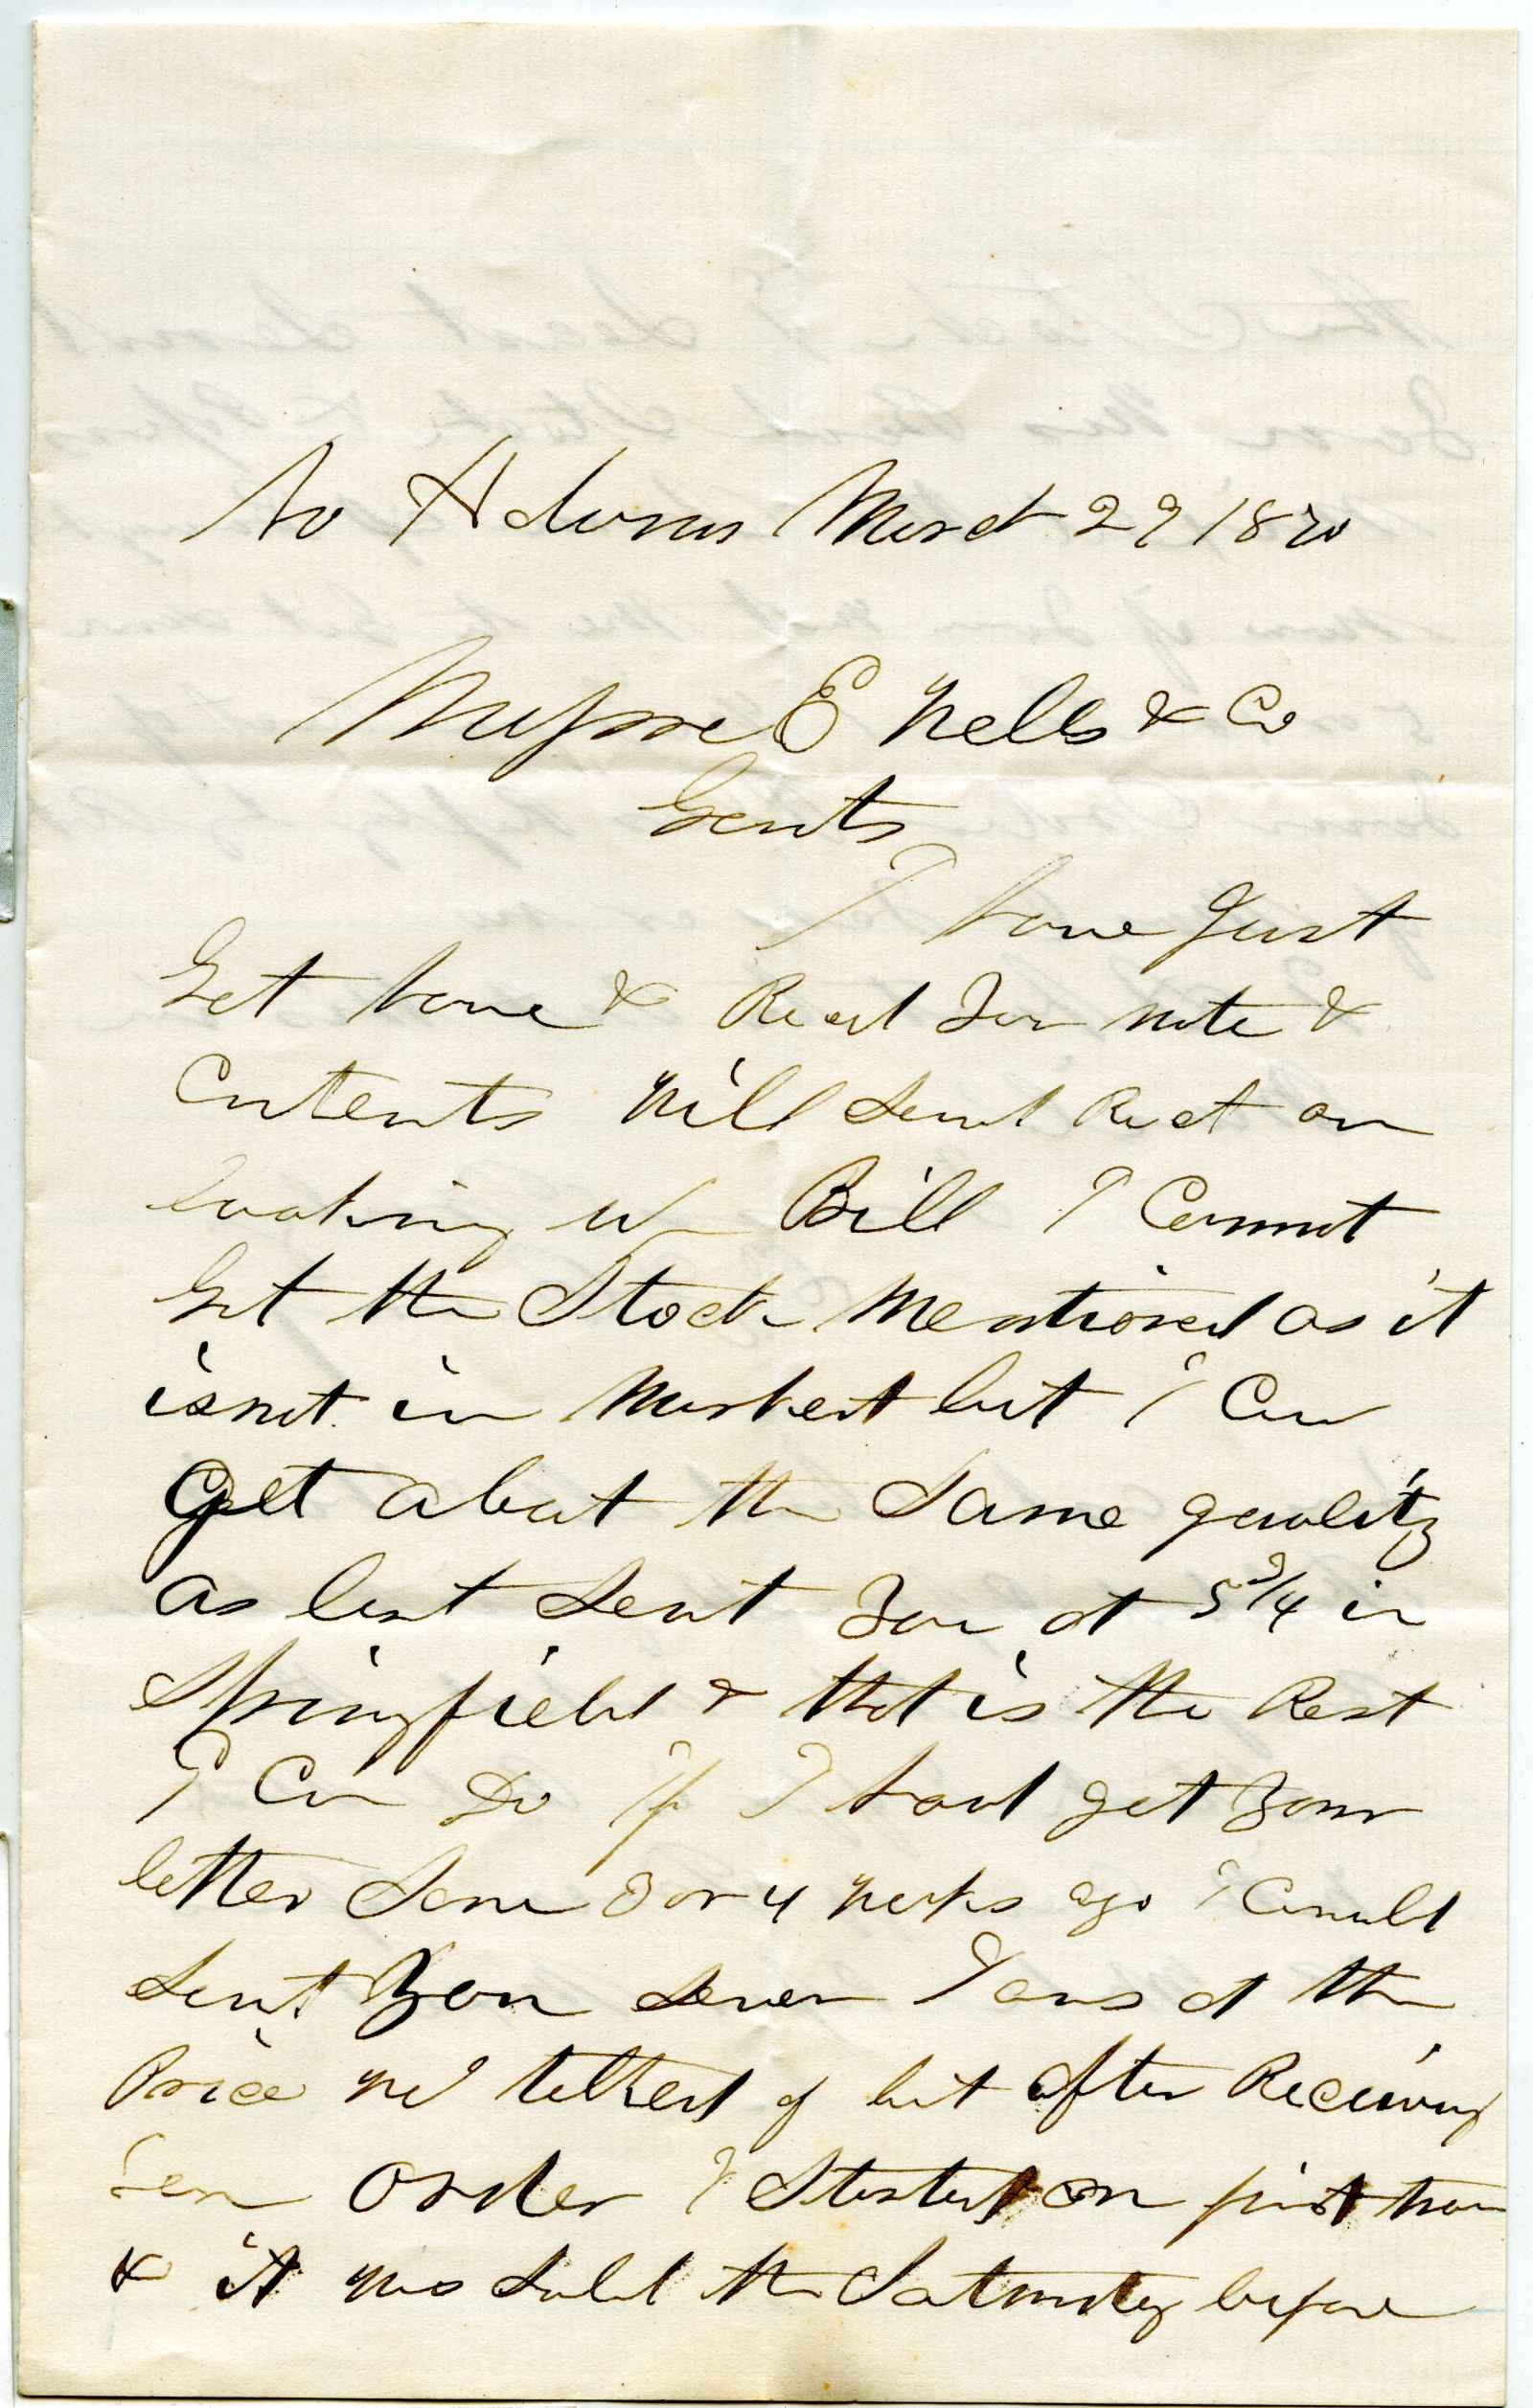 No Adams March 29 1870
Messrs E Wells & Co
Gents
I have Just
Get home & Recd Your note &
Contents Will Send Rect on
looking up Bill I Cannot
Get the Stock Mentioned as it
is not in Market but I Can
Get about the Same quality
as last Sent You at 5 3/4 in
Springfield & that is the Best
I Can Do If I had got Your
letter Some 3 or 4 weeks ago I Could
Sent You Seven Tons at the
Price we talked of but after Receiving
order I Started on first train
& it was Sold the Saturday before